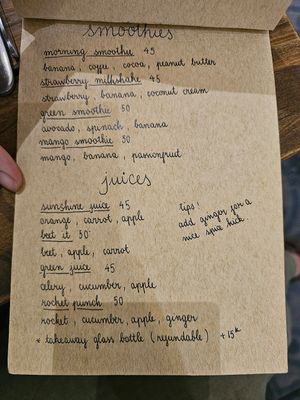 smoothies
morning smoothie 45
banana, coffee, cocoa, peanut butter
strawberry milkshake 45
strawberry, banana, coconut cream
green smoothie 50
avocado, spinach, banana
mango smoothie 50
mango, banana, passionfruit
juices
sunshine juice 45
orange, carrot, apple
beet it 50
beet, apple, carrot
green juice 45
celery, cucumber, apple
rocket punch 50
rocket, cucumber, apple, ginger
* takeaway glass bottle (refundable) +15k
tips!
add ginger for a
nice spice kick